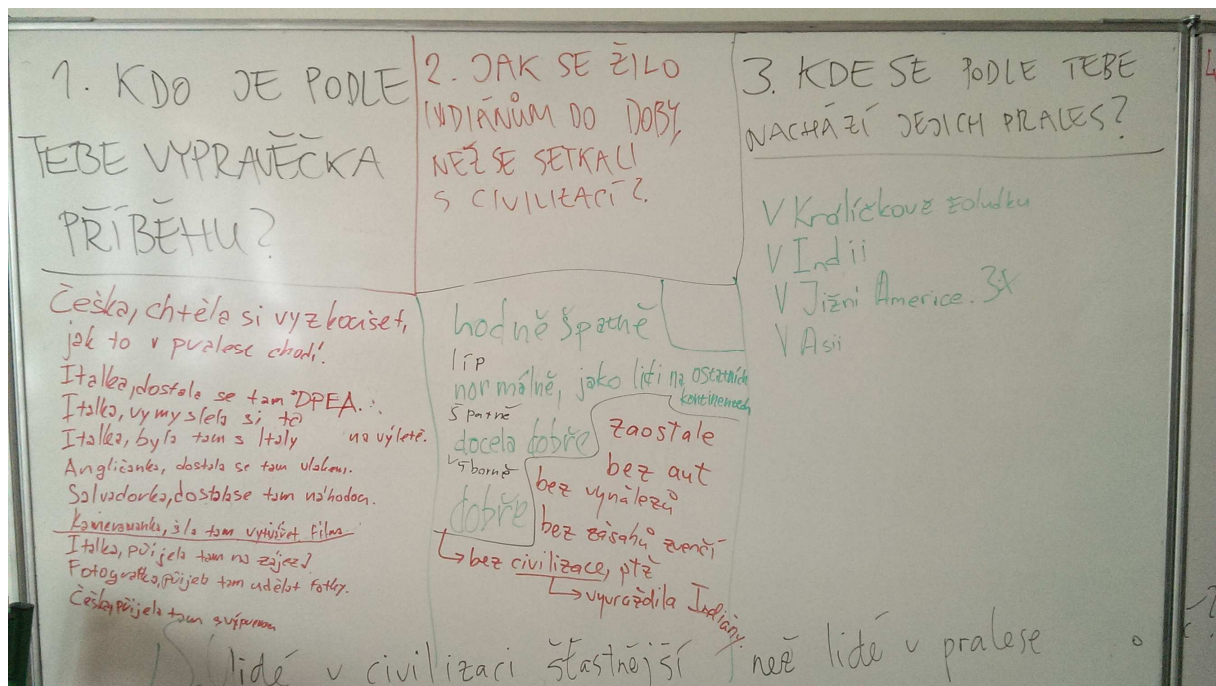 1. KDO JE PODLE
TEBE VYPRAVĚČKA
PŘÍBĚHU?
Češka, chtěla si vyzkoušet,
jak to v pralese chodí.
Italka, dostala se tam DPEA.
Italka, vymyslela si to
Italka, byla tam s Italy na výletě.
Angličanka, dostala se tam vlakem.
Salvadorka, dostala se tam náhodou.
Kameramanka, šla tam vytvářet film
Italka, přijela tam na zájezd.
Fotografka, přijela tam udělat fotky.
Češka, přijela tam s výpravou
2. JAK SE ŽILO
INDIÁNŮM DO DOBY,
NEŽ SE SETKALI
S CIVILIZACÍ?
hodně špatně
líp
normálně, jako lidi na ostatních
kontinentech
špatně
docela dobře
výborně
dobře
zaostale
bez aut
bez vynálezů
bez zásahů zvenčí
bez civilizace, ptž
vyvraždila Indiány.
3. KDE SE PODLE TEBE
NACHÁZÍ JEJICH PRALES?
V Králíčkově žaludku
V Indii
V Jižní Americe. 3x
V Asii
lidé v civilizaci šťastnější než lidé v pralese